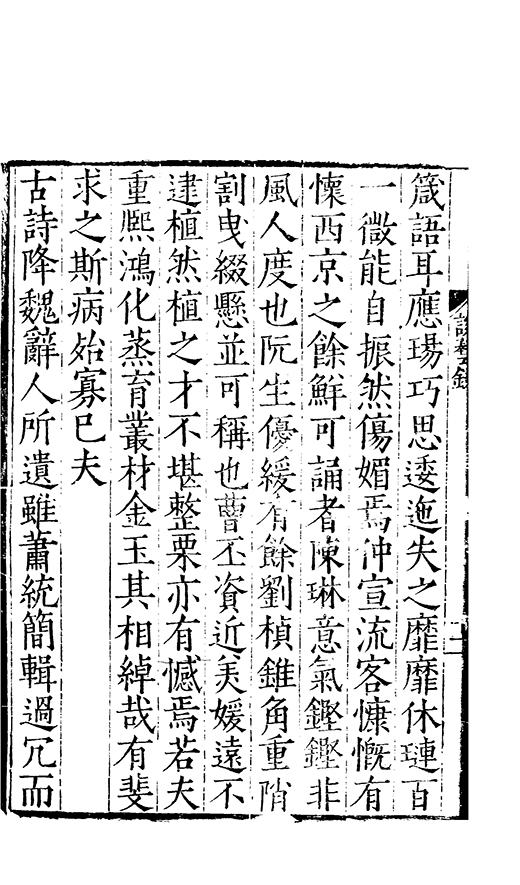 箴語耳應瑒巧思逶迤失之靡靡休璉百
一微能自振然傷媚焉仲宣流客慷慨有
懷西京之餘鮮可誦者陳琳意氣鏗鏗非
風人度也阮生優緩有餘劉楨錐角重陗
割曳綴懸並可稱也曹丕資近美媛遠不
逮植然植之才不堪整栗亦有憾焉若夫
重熙鴻化蒸育叢材金玉其相綽哉有斐
求之斯病始寡已夫
古詩降魏辭人所遺雖蕭統簡輯過冗而